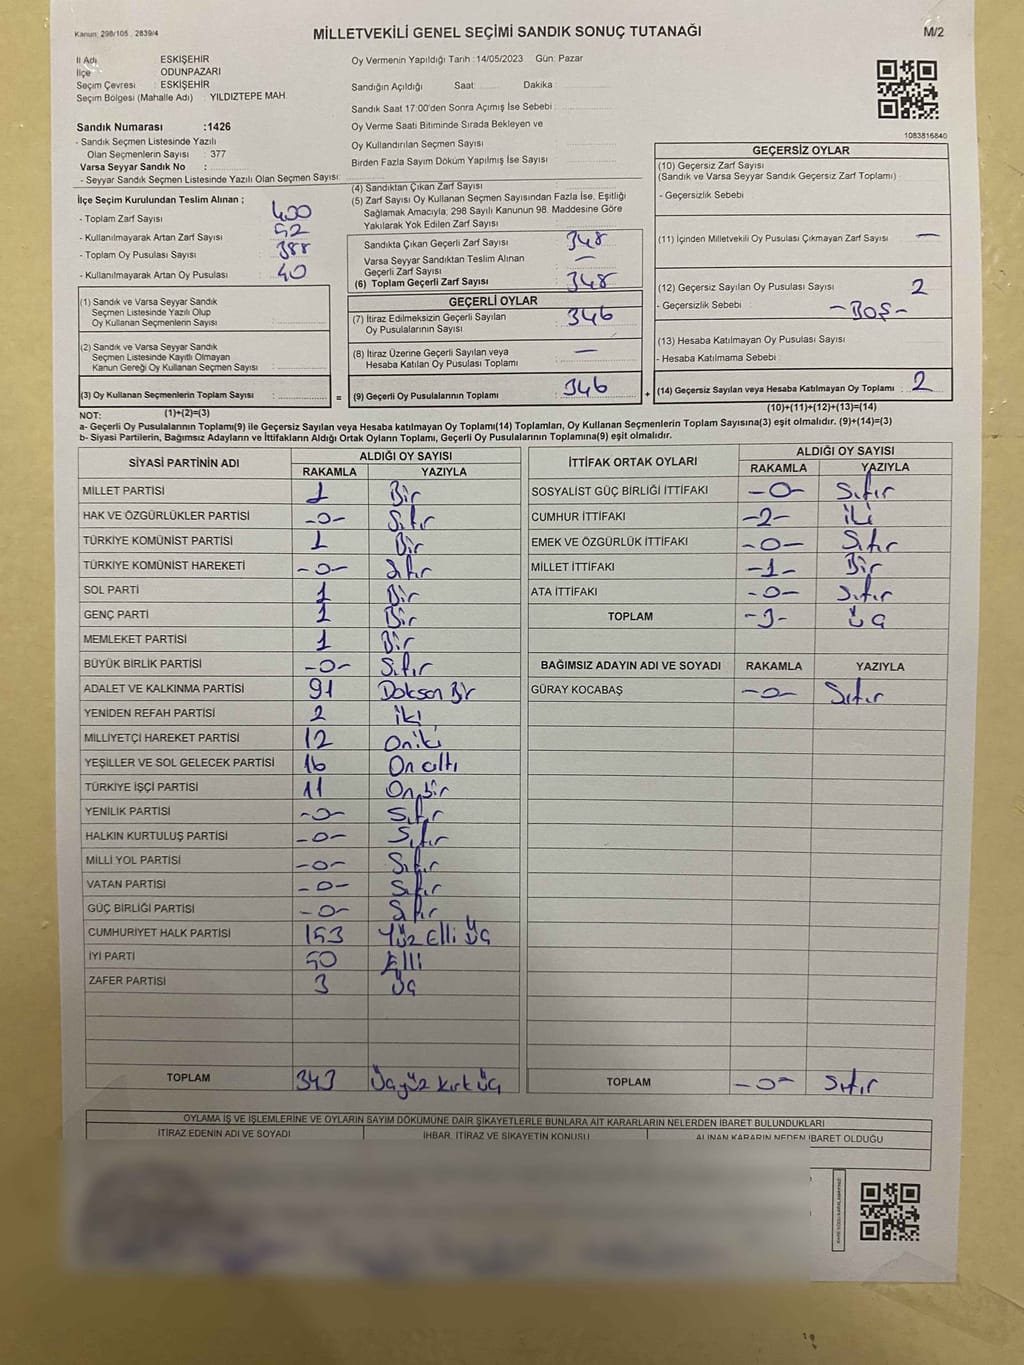 Kanun: 298/105 , 2839/4
MİLLETVEKİLİ GENEL SEÇİMİ SANDIK SONUÇ TUTANAĞI
M/2
İl Adı : ESKİŞEHİR
İlçe : ODUNPAZARI
Seçim Çevresi : ESKİŞEHİR
Seçim Bölgesi (Mahalle Adı) : YILDIZTEPE MAH.
Sandık Numarası :1426
- Sandık Seçmen Listesinde Yazılı
Olan Seçmenlerin Sayısı : 377
Varsa Seyyar Sandık No :
- Seyyar Sandık Seçmen Listesinde Yazılı Olan Seçmen Sayısı:
Oy Vermenin Yapıldığı Tarih : 14/05/2023 Gün: Pazar
Sandığın Açıldığı Saat: Dakika :
Sandık Saat 17:00'den Sonra Açımış İse Sebebi :
Oy Verme Saati Bitiminde Sırada Bekleyen ve
Oy Kullandırılan Seçmen Sayısı
Birden Fazla Sayım Döküm Yapılmış İse Sayısı
1083816840
İlçe Seçim Kurulundan Teslim Alınan ;
- Toplam Zarf Sayısı : 400
- Kullanılmayarak Artan Zarf Sayısı : 52
- Toplam Oy Pusulası Sayısı : 388
- Kullanılmayarak Artan Oy Pusulası : 40
(1) Sandık ve Varsa Seyyar Sandık
Seçmen Listesinde Yazılı Olup
Oy Kullanan Seçmenlerin Sayısı :
(2) Sandık ve Varsa Seyyar Sandık
Seçmen Listesinde Kayıtlı Olmayan
Kanun Gereği Oy Kullanan Seçmen Sayısı :
(3) Oy Kullanan Seçmenlerin Toplam Sayısı :
(1)+(2)=(3)
(4) Sandıktan Çıkan Zarf Sayısı
(5) Zarf Sayısı Oy Kullanan Seçmen Sayısından Fazla İse, Eşitliği
Sağlamak Amacıyla; 298 Sayılı Kanunun 98. Maddesine Göre
Yakılarak Yok Edilen Zarf Sayısı
Sandıkta Çıkan Geçerli Zarf Sayısı 348
Varsa Seyyar Sandıktan Teslim Alınan
Geçerli Zarf Sayısı —
(6) Toplam Geçerli Zarf Sayısı 348
GEÇERLİ OYLAR
(7) İtiraz Edilmeksizin Geçerli Sayılan
Oy Pusulalarının Sayısı 346
(8) İtiraz Üzerine Geçerli Sayılan veya
Hesaba Katılan Oy Pusulası Toplamı —
= (9) Geçerli Oy Pusulalarının Toplamı 346 +
GEÇERSİZ OYLAR
(10) Geçersiz Zarf Sayısı
(Sandık ve Varsa Seyyar Sandık Geçersiz Zarf Toplamı)
- Geçersizlik Sebebi
(11) İçinden Milletvekili Oy Pusulası Çıkmayan Zarf Sayısı —
(12) Geçersiz Sayılan Oy Pusulası Sayısı 2
- Geçersizlik Sebebi -BOŞ-
(13) Hesaba Katılmayan Oy Pusulası Sayısı
- Hesaba Katılmama Sebebi
(14) Geçersiz Sayılan veya Hesaba Katılmayan Oy Toplamı : 2
(10)+(11)+(12)+(13)=(14)
NOT:
a- Geçerli Oy Pusulalarının Toplamı(9) ile Geçersiz Sayılan veya Hesaba katılmayan Oy Toplamı(14) Toplamları, Oy Kullanan Seçmenlerin Toplam Sayısına(3) eşit olmalıdır. (9)+(14)=(3)
b- Siyasi Partilerin, Bağımsız Adayların ve İttifakların Aldığı Ortak Oyların Toplamı, Geçerli Oy Pusulalarının Toplamına(9) eşit olmalıdır.
SİYASİ PARTİNİN ADI ALDIĞI OY SAYISI
RAKAMLA YAZIYLA
MİLLET PARTİSİ 1 Bir
HAK VE ÖZGÜRLÜKLER PARTİSİ -0- Sıfır
TÜRKİYE KOMÜNİST PARTİSİ 1 Bir
TÜRKİYE KOMÜNİST HAREKETİ -0- Sıfır
SOL PARTİ 1 Bir
GENÇ PARTİ 1 Bir
MEMLEKET PARTİSİ 1 Bir
BÜYÜK BİRLİK PARTİSİ -0- Sıfır
ADALET VE KALKINMA PARTİSİ 91 Doksan Bir
YENİDEN REFAH PARTİSİ 2 iki
MİLLİYETÇİ HAREKET PARTİSİ 12 Oniki
YEŞİLLER VE SOL GELECEK PARTİSİ 16 On altı
TÜRKİYE İŞÇİ PARTİSİ 11 On bir
YENİLİK PARTİSİ -0- Sıfır
HALKIN KURTULUŞ PARTİSİ -0- Sıfır
MİLLİ YOL PARTİSİ -0- Sıfır
VATAN PARTİSİ -0- Sıfır
GÜÇ BİRLİĞİ PARTİSİ -0- Sıfır
CUMHURİYET HALK PARTİSİ 153 Yüz Elli Üç
İYİ PARTİ 50 Elli
ZAFER PARTİSİ 3 Üç
TOPLAM 343 Üçyüz Kırk Üç
İTTİFAK ORTAK OYLARI ALDIĞI OY SAYISI
RAKAMLA YAZIYLA
SOSYALİST GÜÇ BİRLİĞİ İTTİFAKI -0- Sıfır
CUMHUR İTTİFAKI -2- iki
EMEK VE ÖZGÜRLÜK İTTİFAKI -0- Sıfır
MİLLET İTTİFAKI -1- Bir
ATA İTTİFAKI -0- Sıfır
TOPLAM -3- Üç
BAĞIMSIZ ADAYIN ADI VE SOYADI RAKAMLA YAZIYLA
GÜRAY KOCABAŞ -0- Sıfır
TOPLAM -0- Sıfır
OYLAMA İŞ VE İŞLEMLERİNE VE OYLARIN SAYIM DÖKÜMÜNE DAİR ŞİKAYETLERLE BUNLARA AİT KARARLARIN NELERDEN İBARET BULUNDUKLARI
İTİRAZ EDENİN ADI VE SOYADI İHBAR, İTİRAZ VE ŞİKAYETİN KONUSU ALINAN KARARIN NEDEN İBARET OLDUĞU